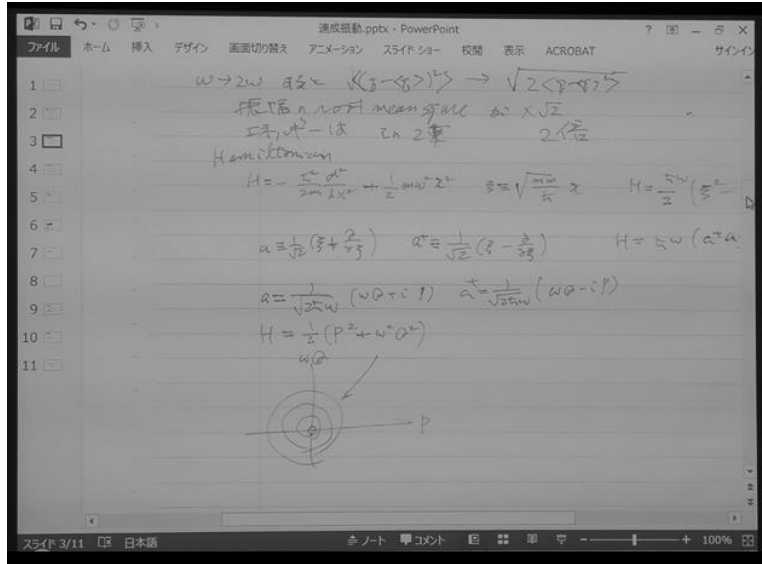 連成振動.pptx - PowerPoint
ファイル ホーム 挿入 デザイン 画面切り替え アニメーション スライド ショー 校閲 表示 ACROBAT サインイン
1
2
3
4
5
6
7
8
9
10
11
ω→2ω
振幅の root mean square が ×√2
エネルギーは この2乗 2倍
Hamiltonian
H = - ħ²/2m d²/dx² + 1/2 mω²x² ξ ≡ √(mω/ħ) x H = ħω/2 (ξ² -
a ≡ 1/√2 (ξ + ∂/∂ξ) a⁺ ≡ 1/√2 (ξ - ∂/∂ξ) H = ħω (a⁺a
a = 1/√2ħω (ωQ + iP) a⁺ = 1/√2ħω (ωQ - iP)
H = 1/2 (P² + ω²Q²)
ωQ
P
スライド 3/11 日本語 ノート コメント 100%